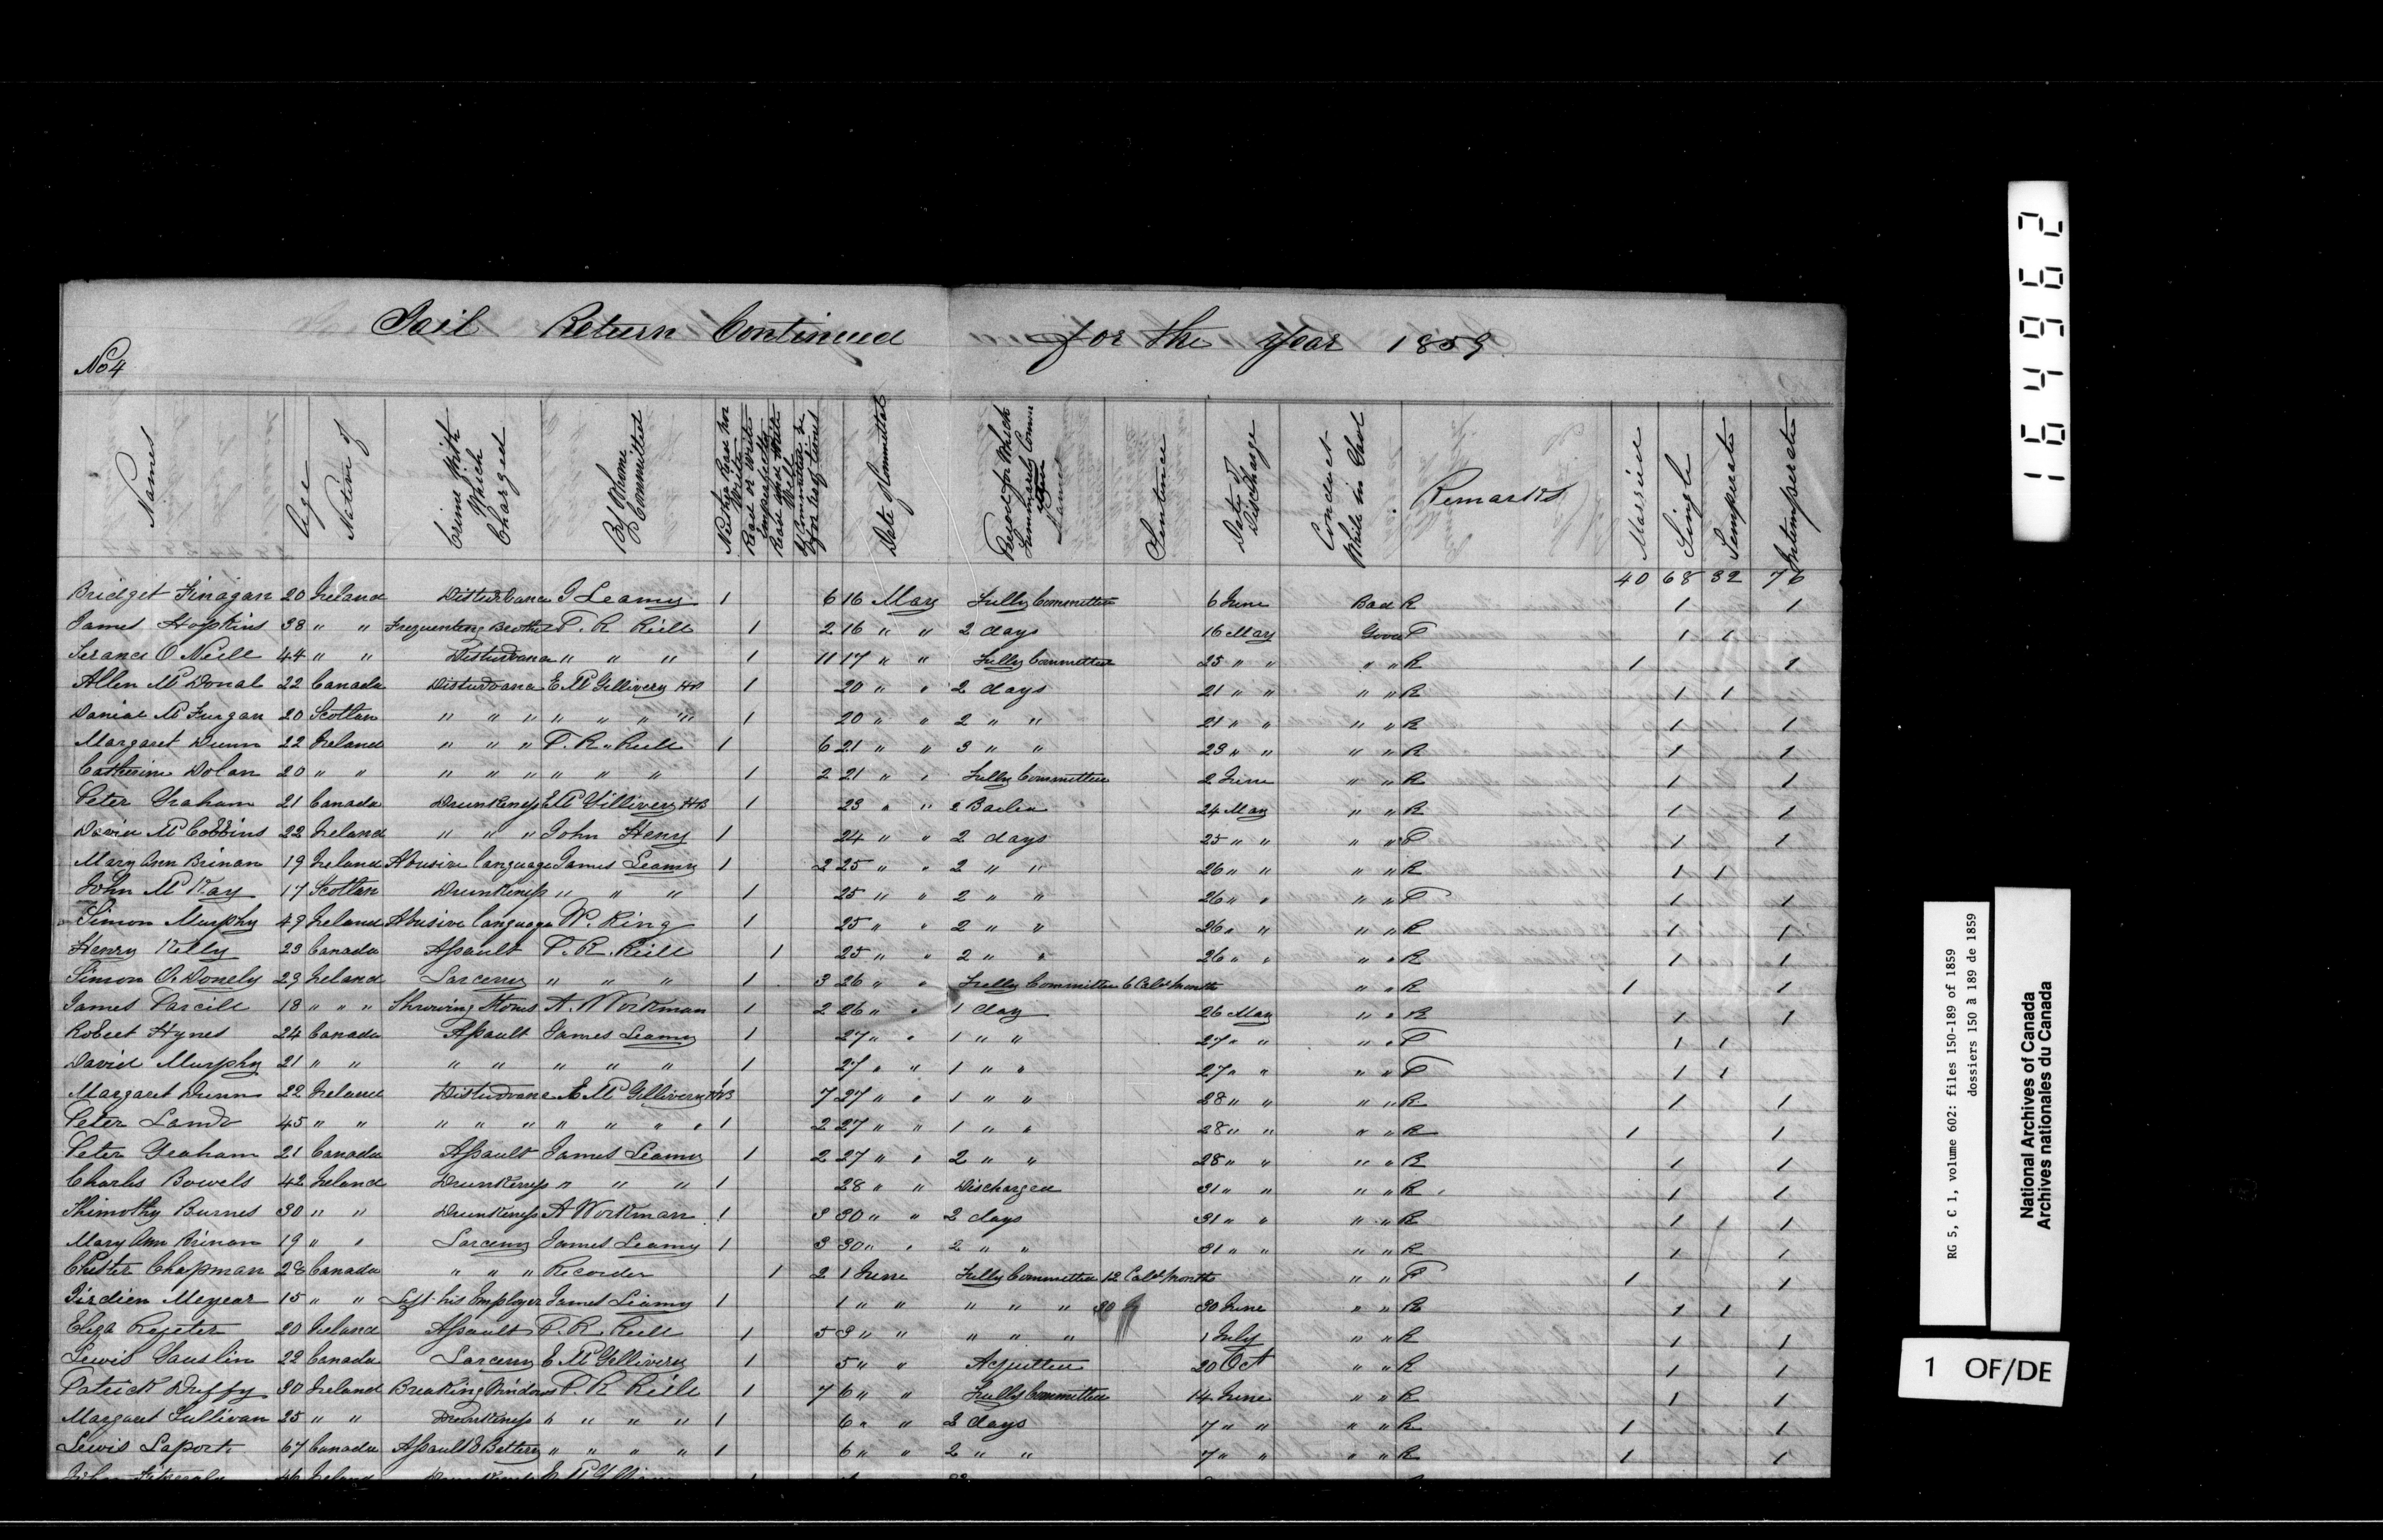 Jail Return Continued for the year 1859
No 4
Names
Age
Native of
Crime With Which Charged
By Whome Committed
Neither Read nor Write
Read or write imperfectly
Read and Write Well
Date of Committal
Period for Which Summarily
Sentence
Date of Discharge
Conduct While in Gaol
Remarks
Married
Single
Temperate
Intemperate
40 68 32 76
Bridget Finagan 20 Ireland Disturbance J Leamy 1 6 16 May Fully Committed 6 June Bad R 1 1
James Hopkins 38 " " Frequenting Brothel P. R Reill 1 2 16 " " 2 days 16 May Good P 1 1
Terance O Neill 44 " " Disturbance " " " 1 11 17 " " Fully Committed 25 " " " " R 1 1
Allen Mc Donal 22 Canada Disturbance E Mc Gillivery 1 20 " " 2 days 21 " " " " R 1 1
Danial Mc Furgan 20 Scotlan " " " " " " " 1 20 " " 2 " " 21 " " " " R 1 1
Margaret Dunn 22 Ireland " " " P. R. Reill 1 6 21 " " 3 " " 23 " " " " R 1 1
Catherine Dolan 20 " " " " " " " " 1 2 21 " " Fully Committed 2 June " " R 1 1
Peter Graham 21 Canada Drunkeness E Mc Gillivery 1 23 " " Bailed 24 May " " R 1 1
David Mc Cobbins 22 Ireland " " " John Heny 1 24 " " 2 days 25 " " " " P 1 1
Mary Ann Brinan 19 Ireland Abusive language James Leamy 1 2 25 " " 2 " " 26 " " " " R 1 1
John Mc Kay 17 Scotlan Drunkeness " " " 1 25 " " 2 " " 26 " " " " P 1 1
Simon Murphy 49 Ireland Abusive language W. King 1 25 " " 2 " " 26 " " " " R 1 1
Henry Kelly 23 Canada Assault P. R. Reill 1 25 " " 2 " " 26 " " " " R 1 1
Simon O. Donely 29 Ireland Larceny " " " 1 3 26 " " Fully Committed 6 Cald Months " " R 1 1
James Parcill 18 " " " Throwing Stones A. Workman 1 2 26 " " 1 day 26 May " " R 1 1
Robert Hynes 24 Canada Assault James Leamy 1 27 " " 1 " " 27 " " " " P 1 1
David Murphy 21 " " " " " " " 1 27 " " 1 " " 27 " " " " P 1 1
Margaret Dunn 22 Ireland Disturbance E Mc Gillivery 1 7 27 " " 1 " " 28 " " " " R 1 1
Peter Lamb 45 " " " " " " " " " 1 2 27 " " 1 " " 28 " " " " R 1 1
Peter Graham 21 Canada Assault James Leamy 1 2 27 " " 2 " " 28 " " " " R 1 1
Charles Bowels 42 Ireland Drunkeness " " " 1 28 " " Discharged 31 " " " " R 1 1
Thimothy Burnes 30 " " Drunkeness A Workman 1 3 30 " " 2 days 31 " " " " R 1 1 1
Mary Ann Brinan 19 " " Larceny James Leamy 1 3 30 " " 2 " " 31 " " " " R 1 1
Chester Chapman 28 Canada " " " Recorder 1 2 1 June Fully Committed 12 Cald Months " " P 1 1
Meyear 15 " " Left his Employer James Leamy 1 1 " " " " " 30 30 June " " R 1 1
Eliza 20 Ireland Assault P. R. Reill 1 5 3 " " " " " 1 July " " R 1 1
Lewis Gauslin 22 Canada Larceny E Mc Gillivery 1 5 " " Acquitted 20 Oct " " R 1 1
Patrick Duffy 30 Ireland Breaking Windows P. R Reill 1 7 6 " " Fully Committed 14 June " " R 1 1
Margaret Sullivan 25 " " Drunkeness " " " " 1 6 " " 2 days 7 " " " " R 1 1
Lewis Laport 67 Canada Assault & Battery " " " " 1 6 " " 2 " " 7 " " " " R 1 1
164962
RG 5, C 1, volume 602: files 150-189 of 1859
dossiers 150 à 189 de 1859
National Archives of Canada
Archives nationales du Canada
1 OF/DE